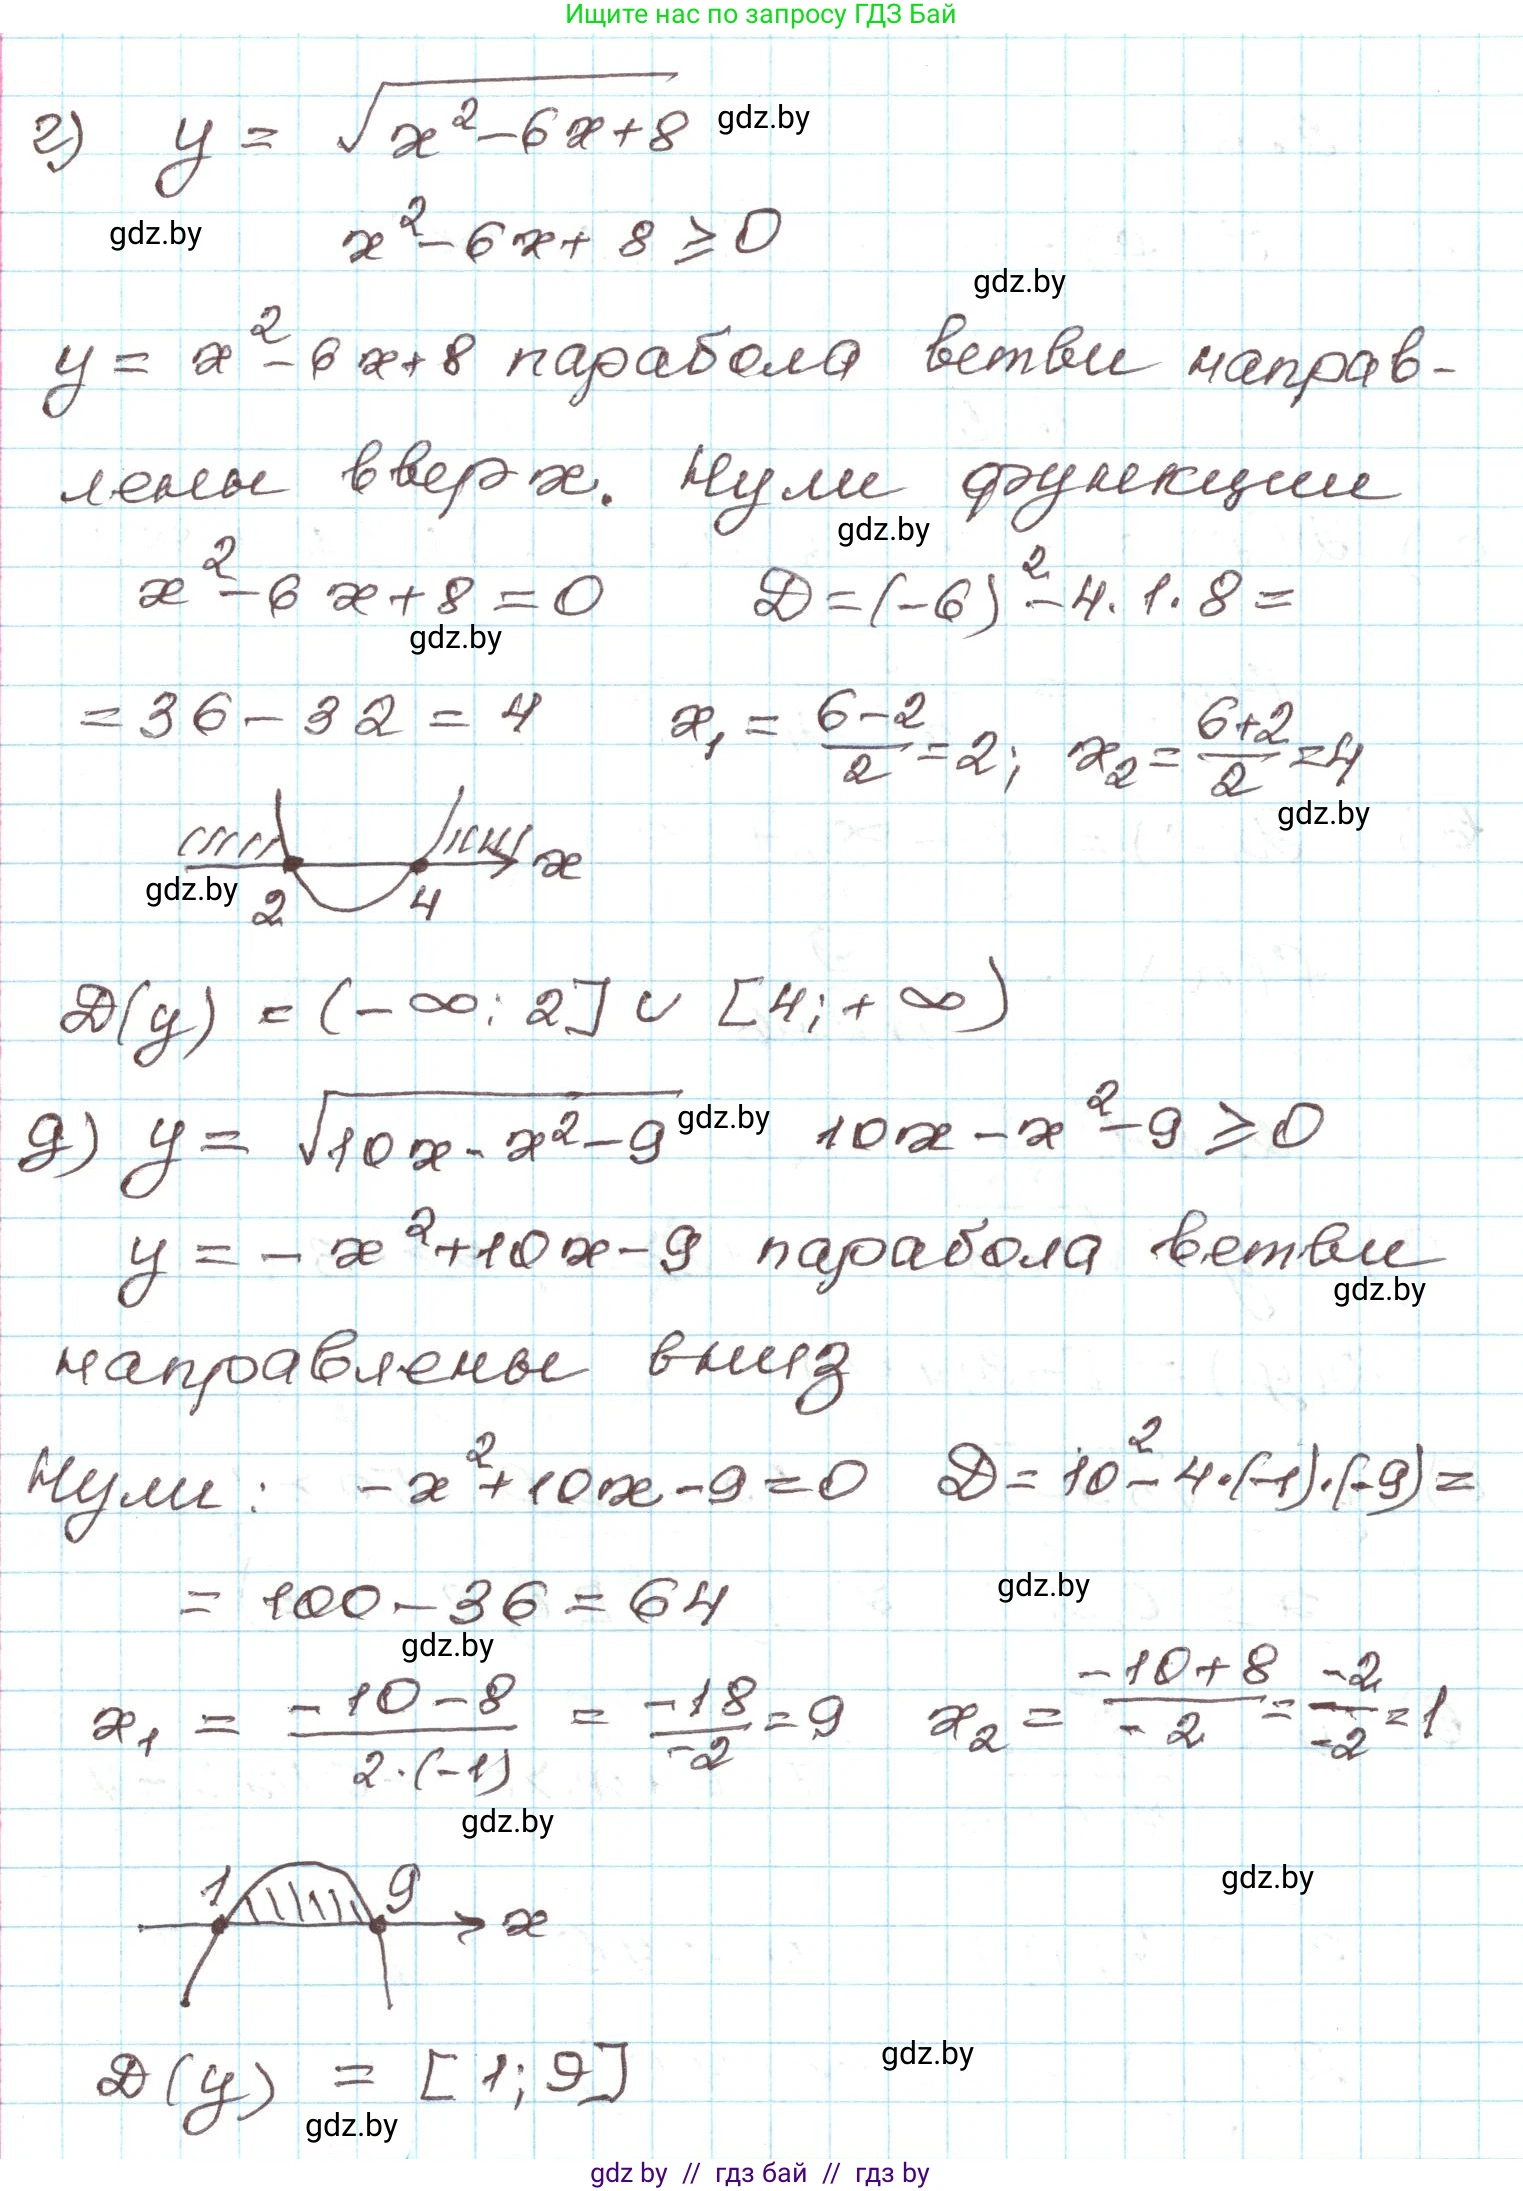 Ищите нас по запросу ГДЗ Бай
г) y = √(x² - 6x + 8) gdz.by
gdz.by x² - 6x + 8 ≥ 0
gdz.by
y = x² - 6x + 8 парабола ветви направ-
лены вверх. Нули функции
gdz.by
x² - 6x + 8 = 0 D = (-6)² - 4·1·8 =
gdz.by
= 36 - 32 = 4 x₁ = (6-2)/2 = 2; x₂ = (6+2)/2 = 4
gdz.by
x
gdz.by 2 4
D(y) = (-∞; 2] ∪ [4; +∞)
д) y = √(10x - x² - 9) gdz.by 10x - x² - 9 ≥ 0
y = -x² + 10x - 9 парабола ветви
gdz.by
направлены вниз
Нули: -x² + 10x - 9 = 0 D = 10² - 4·(-1)·(-9) =
= 100 - 36 = 64 gdz.by
gdz.by
x₁ = (-10-8)/(2·(-1)) = -18/-2 = 9 x₂ = (-10+8)/-2 = -2/-2 = 1
gdz.by
1 9 x gdz.by
D(y) = [1; 9] gdz.by
gdz.by
gdz by // гдз бай // гдз by